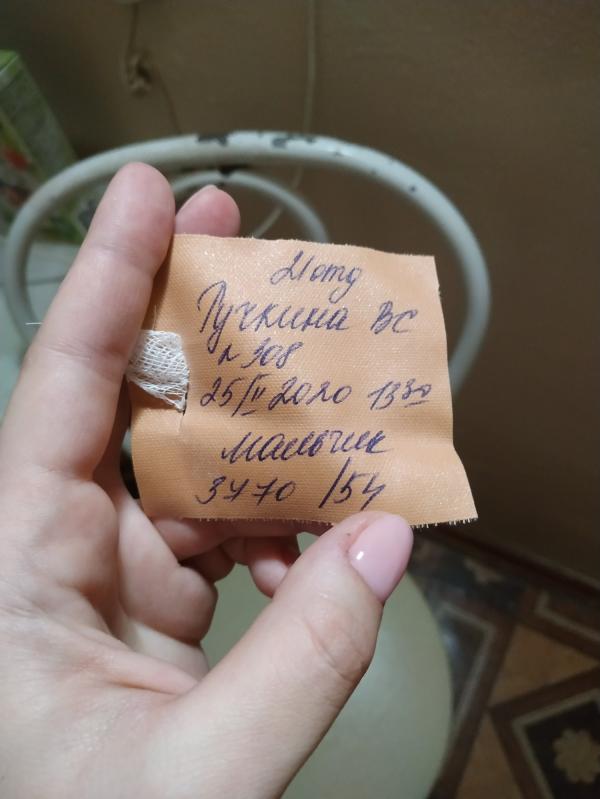 21 отд
Пучкина ВС
п 308
25/II 2020 13 30
мальчик
3470 /54